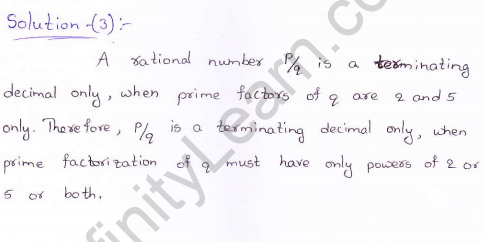 Solution-(3):-
A rational number P/q is a terminating
decimal only, when prime factors of q are 2 and 5
only. Therefore, P/q is a terminating decimal only, when
prime factorization of q must have only powers of 2 or
5 or both.
finityLearn.com